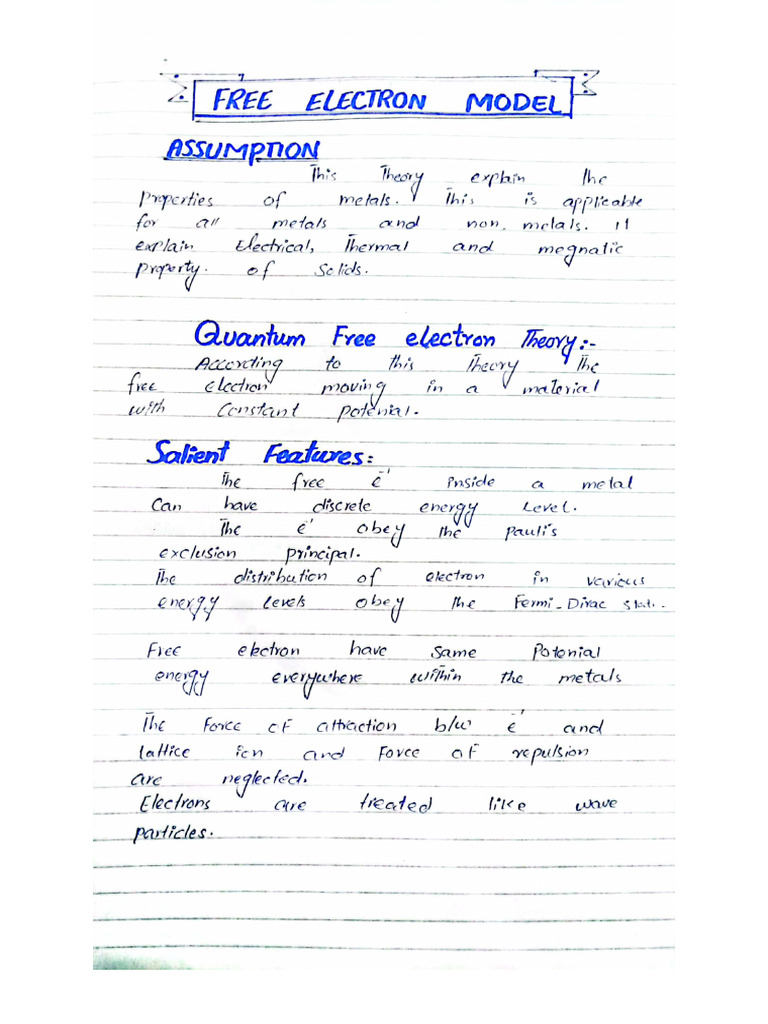 FREE ELECTRON MODEL
ASSUMPTION
This Theory explain the
properties of metals. This is applicable
for all metals and non. metals. It
explain Electrical, Thermal and megnatic
property. of Solids.
Quantum Free electron Theory:-
According to this Theory The
free electron moving in a material
with Constant potenial.
Salient Features:
The free e⁻' inside a metal
Can have discrete energy Level.
The e⁻' obey the pauli's
exclusion principal.
The distribution of electron in various
energy levels obey the Fermi-Dirac stat.
Free electron have same Potenial
energy everywhere within the metals
The Force of attraction b/w e⁻' and
lattice ion and Force of repulsion
are neglected.
Electrons are treated like wave
particles.